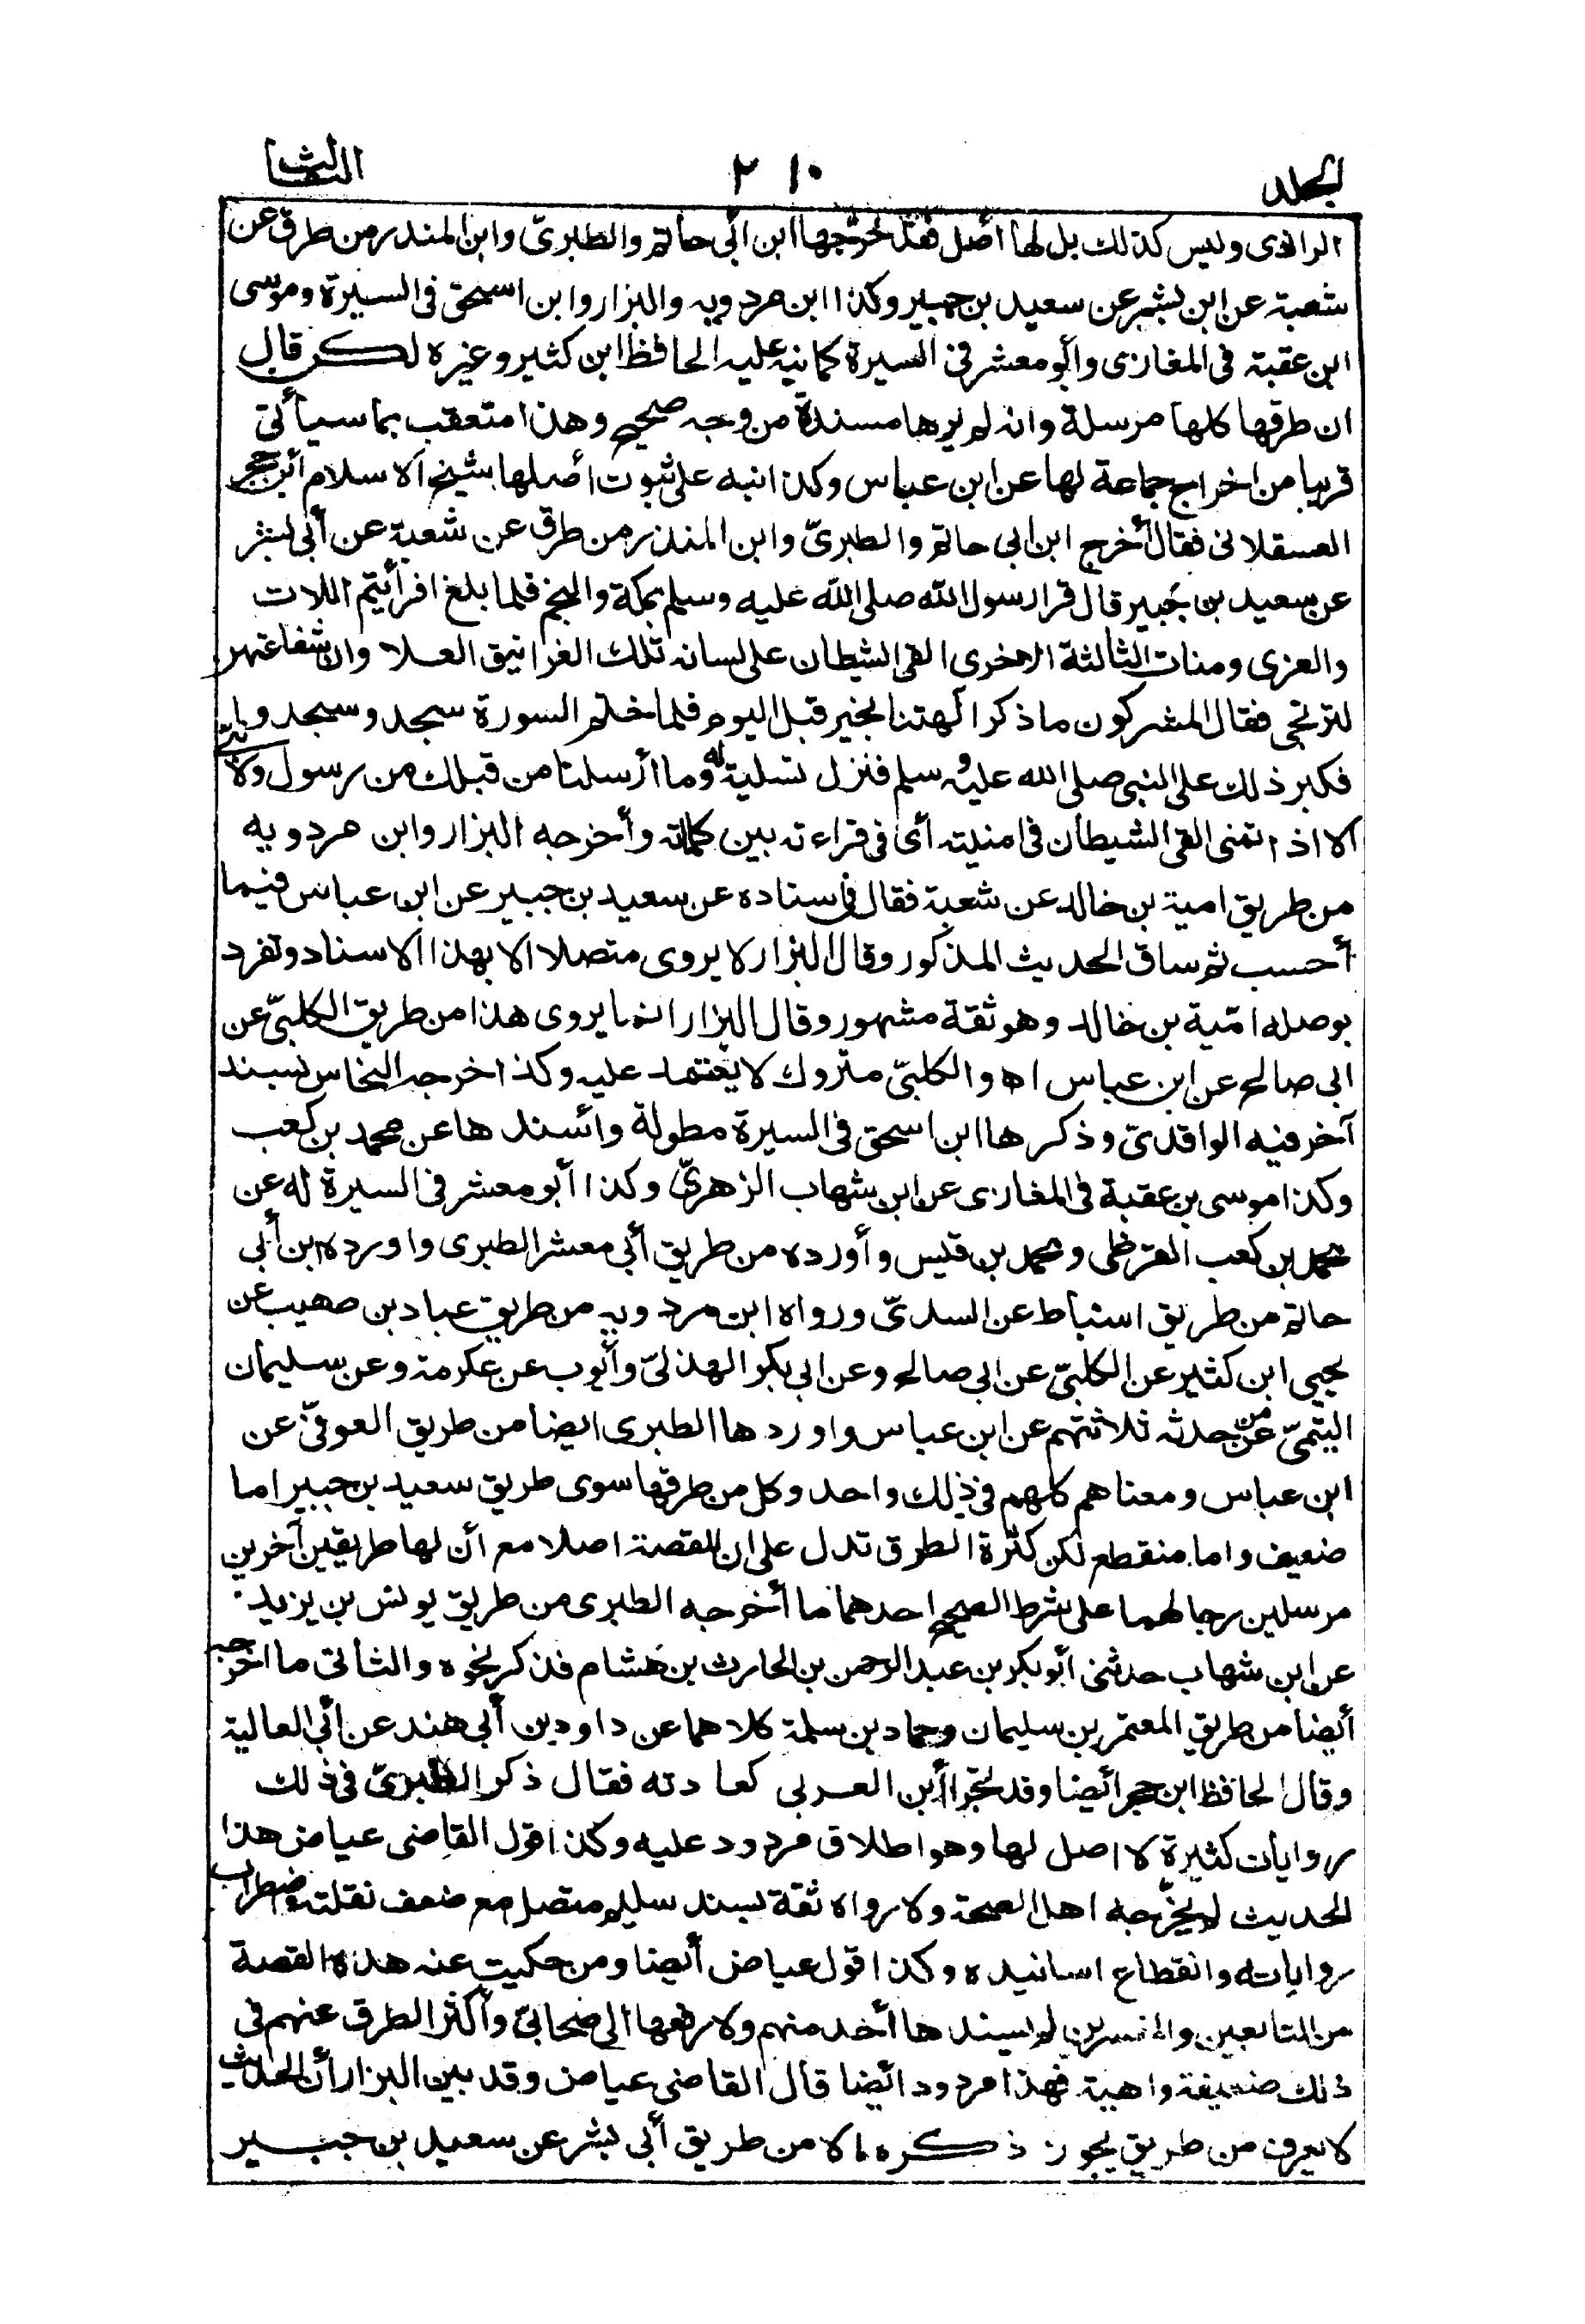 المجلد ٢١٠ الثالث
الرازى وليس كذلك بل لها أصل فقد خرّجها ابن أبي حاتم والطبرىّ وابن المنذر من طرق عن
شعبة عن ابن بشر عن سعيد بن جبير وكذا ابن مردويه والبزار وابن اسحق فى السيرة وموسى
ابن عقبة فى المغازى وأبو معشر فى السيرة كما نبه عليه الحافظ ابن كثير وغيره لكن قال
ان طرقها كلها مرسلة وانه لم يرها مسندة من وجه صحيح وهذا متعقب بما سيأتى
قريبا من اخراج جماعة لها عن ابن عباس وكذا نبه على ثبوت أصلها شيخ الاسلام ابن حجر
العسقلانى فقال أخرج ابن ابى حاتم والطبرىّ وابن المنذر من طرق عن شعبة عن أبى بشر
عن سعيد بن جُبير قال قرا رسول الله صلى الله عليه وسلم بمكة والنجم فلما بلغ افرأيتم اللات
والعزى ومنات الثالثة الاخرى القى الشيطان على لسانه تلك الغرانيق العلا وان شفاعتهن
لترتجى فقال المشركون ما ذكر آلهتنا بخير قبل اليوم فلما ختم السورة سجد وسجدوا
فكبر ذلك على النبى صلى الله عليه وسلم فنزل تسلية له وما أرسلنا من قبلك من رسول ولا نبى
الا اذا تمنى القى الشيطان فى امنيته أى فى قراءته بين كلماته وأخرجه البزار وابن مردويه
من طريق امية بن خالد عن شعبة فقال فى اسناده عن سعيد بن جبير عن ابن عباس فيما
أحسب ثم ساق الحديث المذكور وقال البزار لا يروى متصلا الا بهذا الاسناد وتفرد
بوصله اميّة بن خالد وهو ثقة مشهور وقال البزار انما يروى هذا من طريق الكلبىّ عن
ابى صالح عن ابن عباس اه والكلبىّ متروك لا يعتمد عليه وكذا خرجه النحاس بسند
آخر فيه الواقدىّ وذكرها ابن اسحق فى السيرة مطولة وأسندها عن محمد بن كعب
وكذا موسى بن عقبة فى المغازى عن ابن شهاب الزهرىّ وكذا أبو معشر فى السيرة له عن
محمد بن كعب القرظى ومحمد بن قيس وأورده من طريق أبى معشر الطبرى واورده ابن أبى
حاتم من طريق اسباط عن السدىّ ورواه ابن مردويه من طريق عباد بن صهيب عن
يحيى ابن كثير عن الكلبىّ عن ابى صالح وعن ابى بكر الهذلىّ وأيوب عن عكرمة وعن سليمان
التيمىّ عن من حدثه ثلاثتهم عن ابن عباس واوردها الطبرى ايضا من طريق العوفىّ عن
ابن عباس ومعناهم كلهم فى ذلك واحد وكل من طرقها سوى طريق سعيد بن جبير اما
ضعيف واما منقطع لكن كثرة الطرق تدل على ان للقصة اصلا مع أن لها طريقين آخرين
مرسلين رجالهما على شرط الصحيح احدهما ما أخرجه الطبرى من طريق يونس بن يزيد
عن ابن شهاب حدثنى أبو بكر بن عبد الرحمن بن الحارث بن هشام فذكر نحوه والثانى ما اخرجه
أيضا من طريق المعتمر بن سليمان وحماد بن سلمة كلاهما عن داود بن أبى هند عن أبى العالية
وقال الحافظ ابن حجر أيضا وقد تجرّأ ابن العربى كعادته فقال ذكر الطبرىّ فى ذلك
روايات كثيرة لا اصل لها وهو اطلاق مردود عليه وكذا قول القاضى عياض هذا
الحديث لم يخرّجه اهل الصحة ولا رواه ثقة بسند سليم متصل مع ضعف نقلته واضطراب
رواياته وانقطاع اسانيده وكذا قول عياض أيضا ومن حكيت عنه هذه القصة
من التابعين والمفسرين لم يسندها أحد منهم ولا رفعها الى صحابىّ وأكثر الطرق عنهم فى
ذلك ضعيفة واهية فهذا مردود أيضا قال القاضى عياض وقد بين البزار أن الحديث
لا يعرف من طريق يجوز ذكره الا من طريق أبى بشر عن سعيد بن جبير